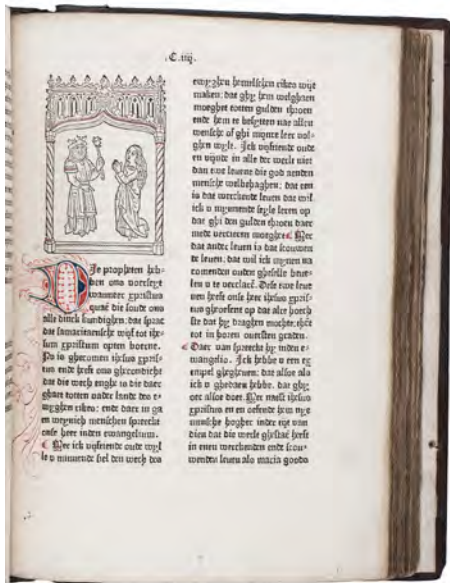 .C.iiij.
Die propheten heb-
ben ons voerseyt
wanneer xpristus
quaē die soude ons
alle dinck kundighen. dat sprac
dat samaritaensche wijf tot ihe-
sum xpristum opten borene.
Nv is ghecomen ihesus xpris-
tus ende heeft ons ghecondicht
dat die wech enghe is die daer
ghaet totten vader lande des e-
wyghen rikes: ende daer in ga
en weynich menschen spreeckt
onse here inden ewangelium.
Mer ick vijfiende oude wyl
le v minnende siel den wech des
ewyghen hemelschen rikes wijt
maken: dat ghy hem welghaen
moeghet totten gulden throen
ende hem te besytten nae allen
wensche of ghi mynre leer vol-
ghen wyle. Ick vijftiende oude
en vijnde in alle der werlt niet
dan twe leuene die god ande
mensche welbehaghen: dat een
is dat werckende leuen dat wil
ick v mynnende syele leren op
dat ghi den gulden throen daer
mede vercieren moeghet Mer
dat ander leuen is dat scouwen
de leuen: dat wil ick mynen na
comenden ouden gheselle beue-
len v te verclarē. Dese twe leue
nen heeft onse here ihesus xpris-
tus ghoefent op dat alre hoech
ste dat hy draghen mochte: ende
tot in horen ouersten graden.
Daer van spreeckt hy inden e-
wangelio. Ick hebbe v een ex
empel ghegheuen: dat alsoe als
ick v ghedaen hebbe. dat ghy
oec alsoe doet. Mer want ihesus
xpristus en en oefende hem nye
mensche hogher inder tijt van
dien dat die werlt ghestaē heeft
in enen werckenden ende scou-
wenden leuen als maria goods